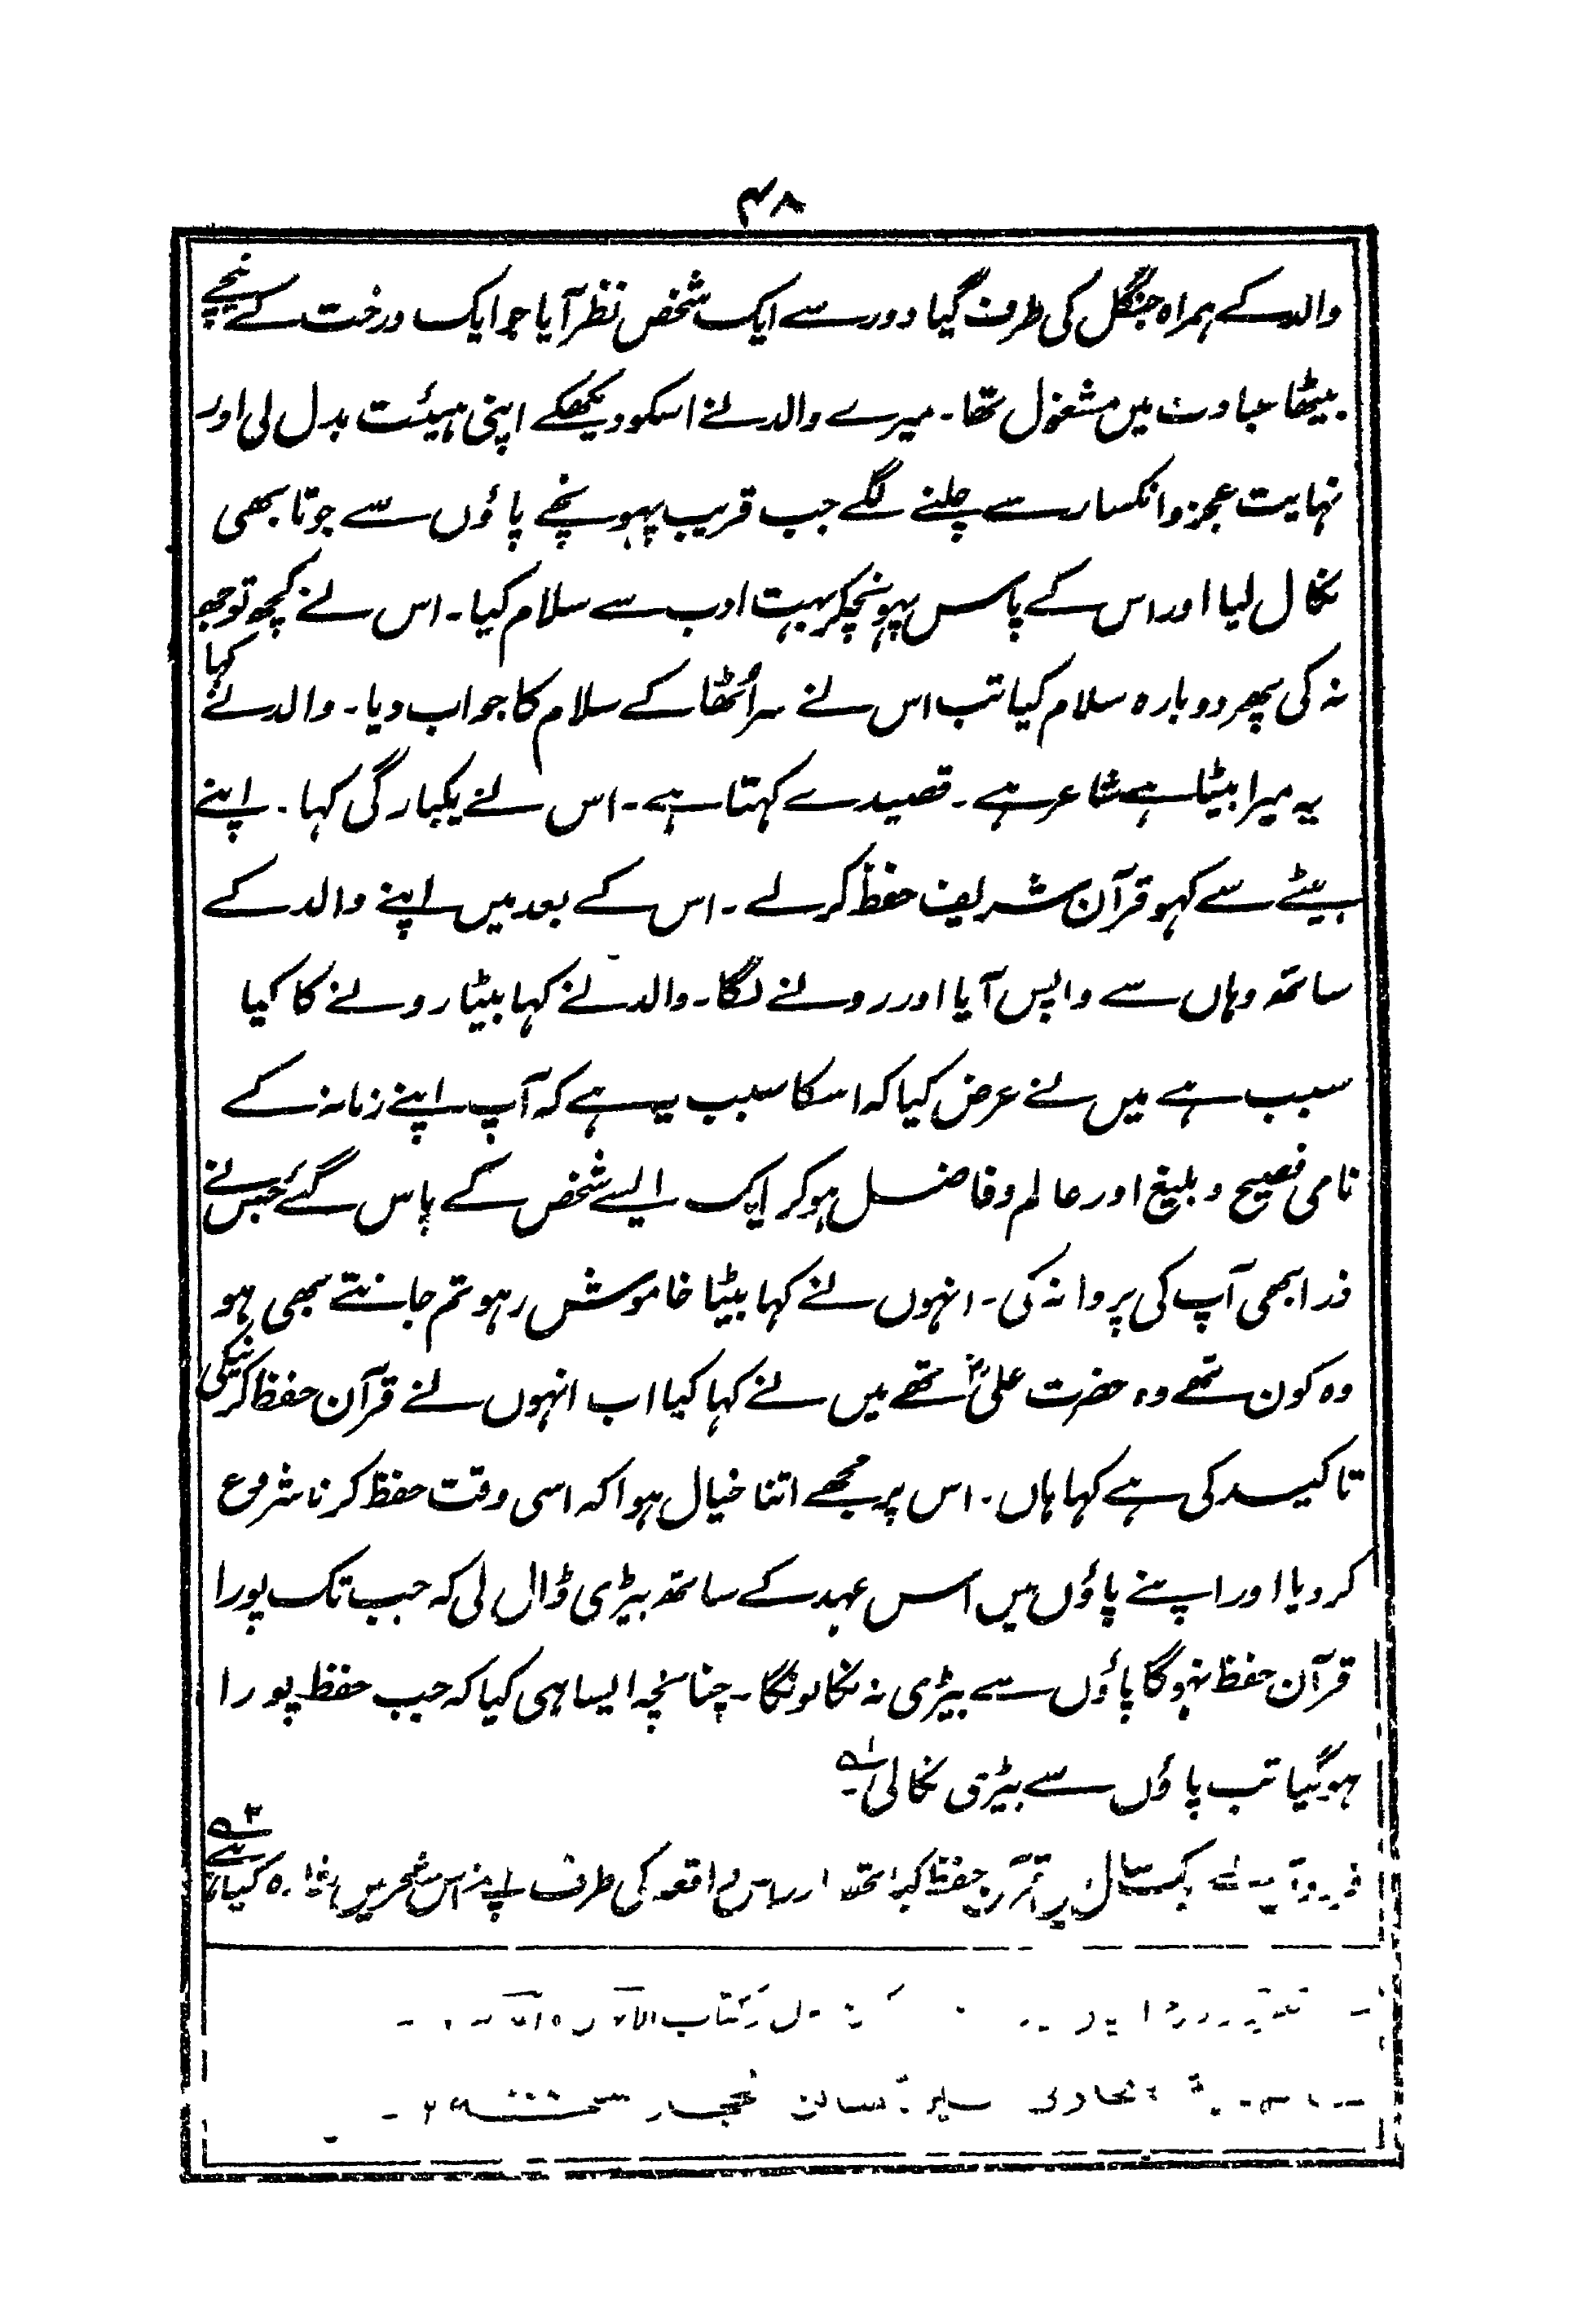 ۴۸
والد کے ہمراہ جنگل کی طرف گیا دور سے ایک شخص نظر آیا جو ایک درخت کے نیچے
بیٹھا عبادت میں مشغول تھا۔ میرے والد نے اسکو دیکھکے اپنی ہیئت بدل لی اور
نہایت عجز و انکسار سے چلنے لگے جب قریب پہونچے پاؤں سے جوتا بھی
نکال لیا اور اس کے پاس پہونچکر بہت ادب سے سلام کیا۔ اس نے کچھ توجہ
نہ کی پھر دوبارہ سلام کیا تب اس نے سر اُٹھا کے سلام کا جواب دیا۔ والد نے کہا
یہ میرا بیٹا ہے شاعر ہے۔ قصیدے کہتا ہے۔ اس نے یکبارگی کہا۔ اپنے
بیٹے سے کہو قرآن شریف حفظ کرلے۔ اس کے بعد میں اپنے والد کے
ساتھ وہاں سے واپس آیا اور رونے لگا۔ والد نے کہا بیٹا رونے کا کیا
سبب ہے میں نے عرض کیا کہ اسکا سبب یہ ہے کہ آپ اپنے زمانہ کے
نامی فصیح و بلیغ اور عالم و فاضل ہوکر ایک ایسے شخص کے پاس گئے جس نے
ذرا بھی آپ کی پروا نہ کی۔ انہوں نے کہا بیٹا خاموش رہو تم جانتے بھی ہو
وہ کون تھے وہ حضرت علیؓ تھے میں نے کہا کیا اب انہوں نے قرآن حفظ کرنیکی
تاکید کی ہے کہا ہاں۔ اس پر مجھے اتنا خیال ہوا کہ اسی وقت حفظ کرنا شروع
کر دیا اور اپنے پاؤں میں اس عہد کے ساتھ بیڑی ڈال لی کہ جب تک پورا
قرآن حفظ نہوگا پاؤں سے بیڑی نہ نکالونگا۔ چنانچہ ایسا ہی کیا کہ جب حفظ پورا
ہوگیا تب پاؤں سے بیڑی نکالی۔ ۱؎
سال قرآن حفظ کیا تھا اور اس واقعہ کی طرف اپنے اس شعر میں اشارہ کیا ہے ۲؎
کتاب